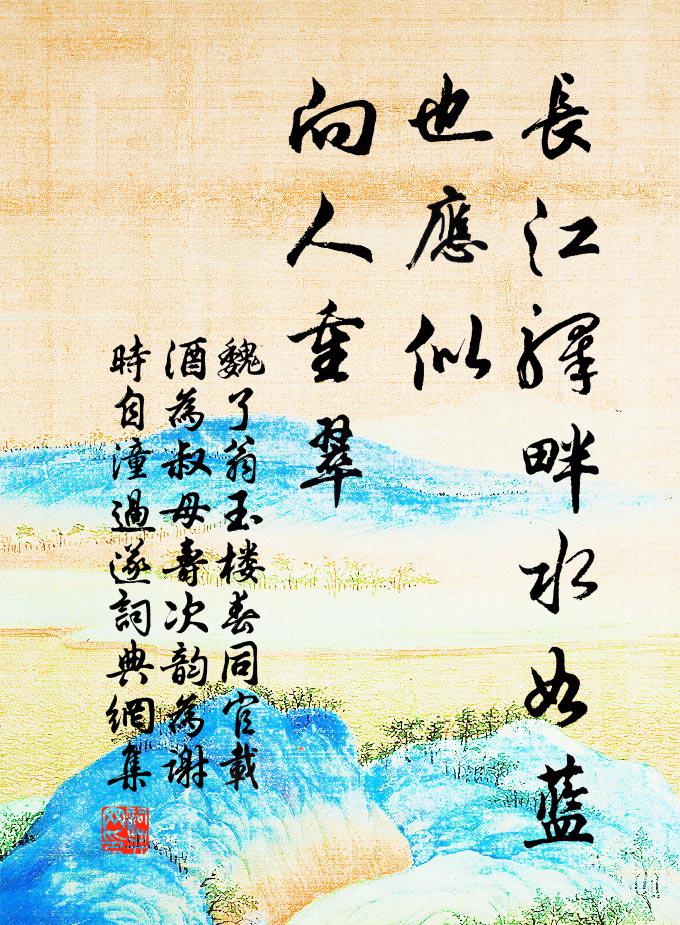 長江驛畔水如藍
也應似
向人重翠
魏了翁玉楼春同官載
酒為叔母壽次韵為謝
時自潼過遂詞典網集